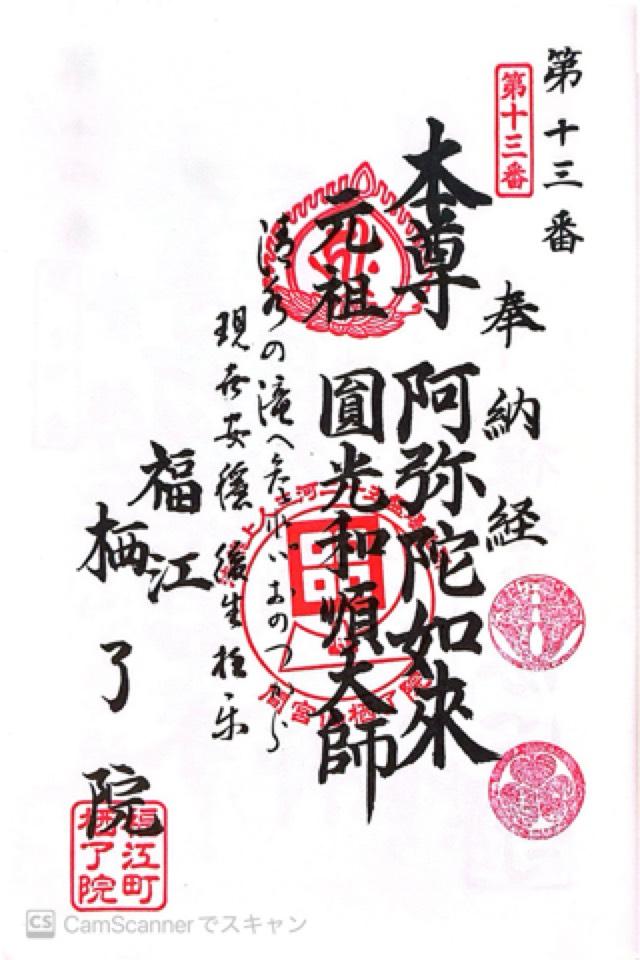 第十三番
第十三番
奉納経
本尊 阿弥陀如來
元祖 圓光和順大師
清水の滝へ参れハおのつから
現世安穏 後生極楽
福江
栖了院
福江町
栖了院
CamScannerでスキャン